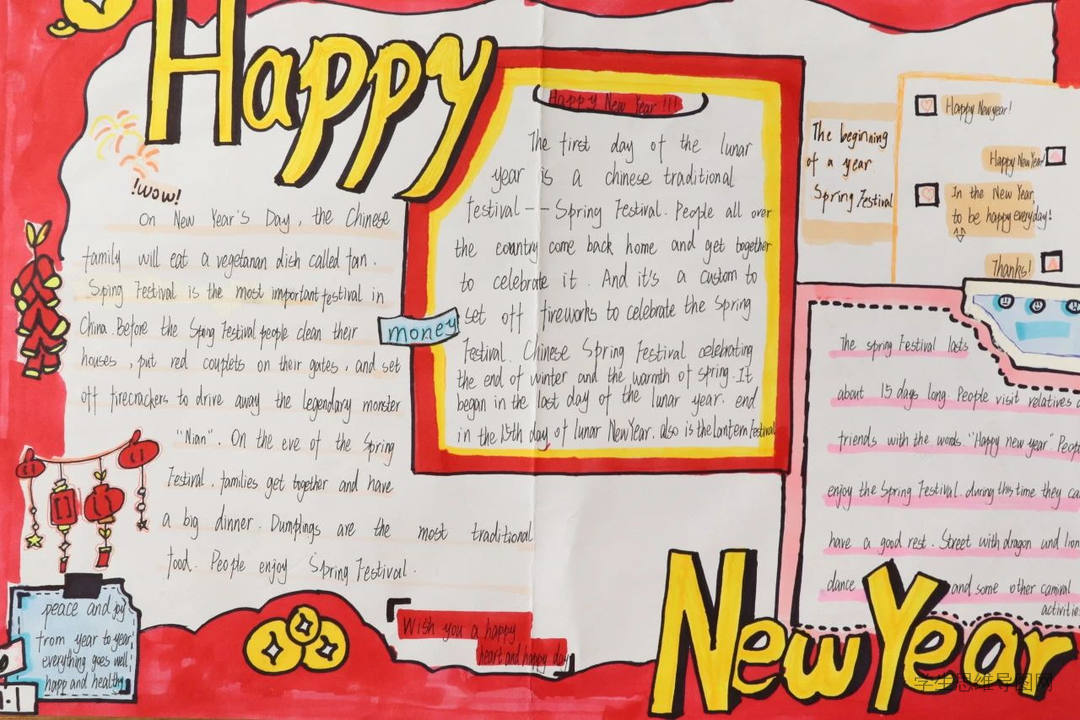 Happy
!wow!
On New Year's Day, the Chinese
family will eat a vegetarian dish called jan.
Sping Festival is the most important festival in
China. Before the Spring Festival people clean their
houses, put red couplets on their gates, and set
off firecrackers to drive away the legendary monster
"Nian". On the eve of the Spring
Festival, families get together and have
a big dinner. Dumplings are the most traditional
food. People enjoy Spring Festival.
money
Happy New Year!!!
The first day of the lunar
year is a chinese traditional
festival -- Spring Festival. People all over
the country come back home and get together
to celebrate it. And it's a custom to
set off fireworks to celebrate the Spring
Festival. Chinese Spring Festival celebrating
the end of winter and the warmth of spring. It
began in the last day of the lunar year. end
in the 15th day of lunar New Year. also is the Lantern Festival
The beginning
of a year
Spring Festival
Happy New year!
Happy New Year!
In the New Year,
to be happy everyday!
Thanks!
The spring Festival lasts
about 15 days long. People visit relatives
friends with the words "Happy new year"
enjoy the Spring Festival. during this time they
have a good rest. Street with dragon and
dance and some other
activities
peace and joy
from year to year,
everything goes well,
happ and healthy
Wish you a happy
heart and happy day
New Year
学生思维导图网